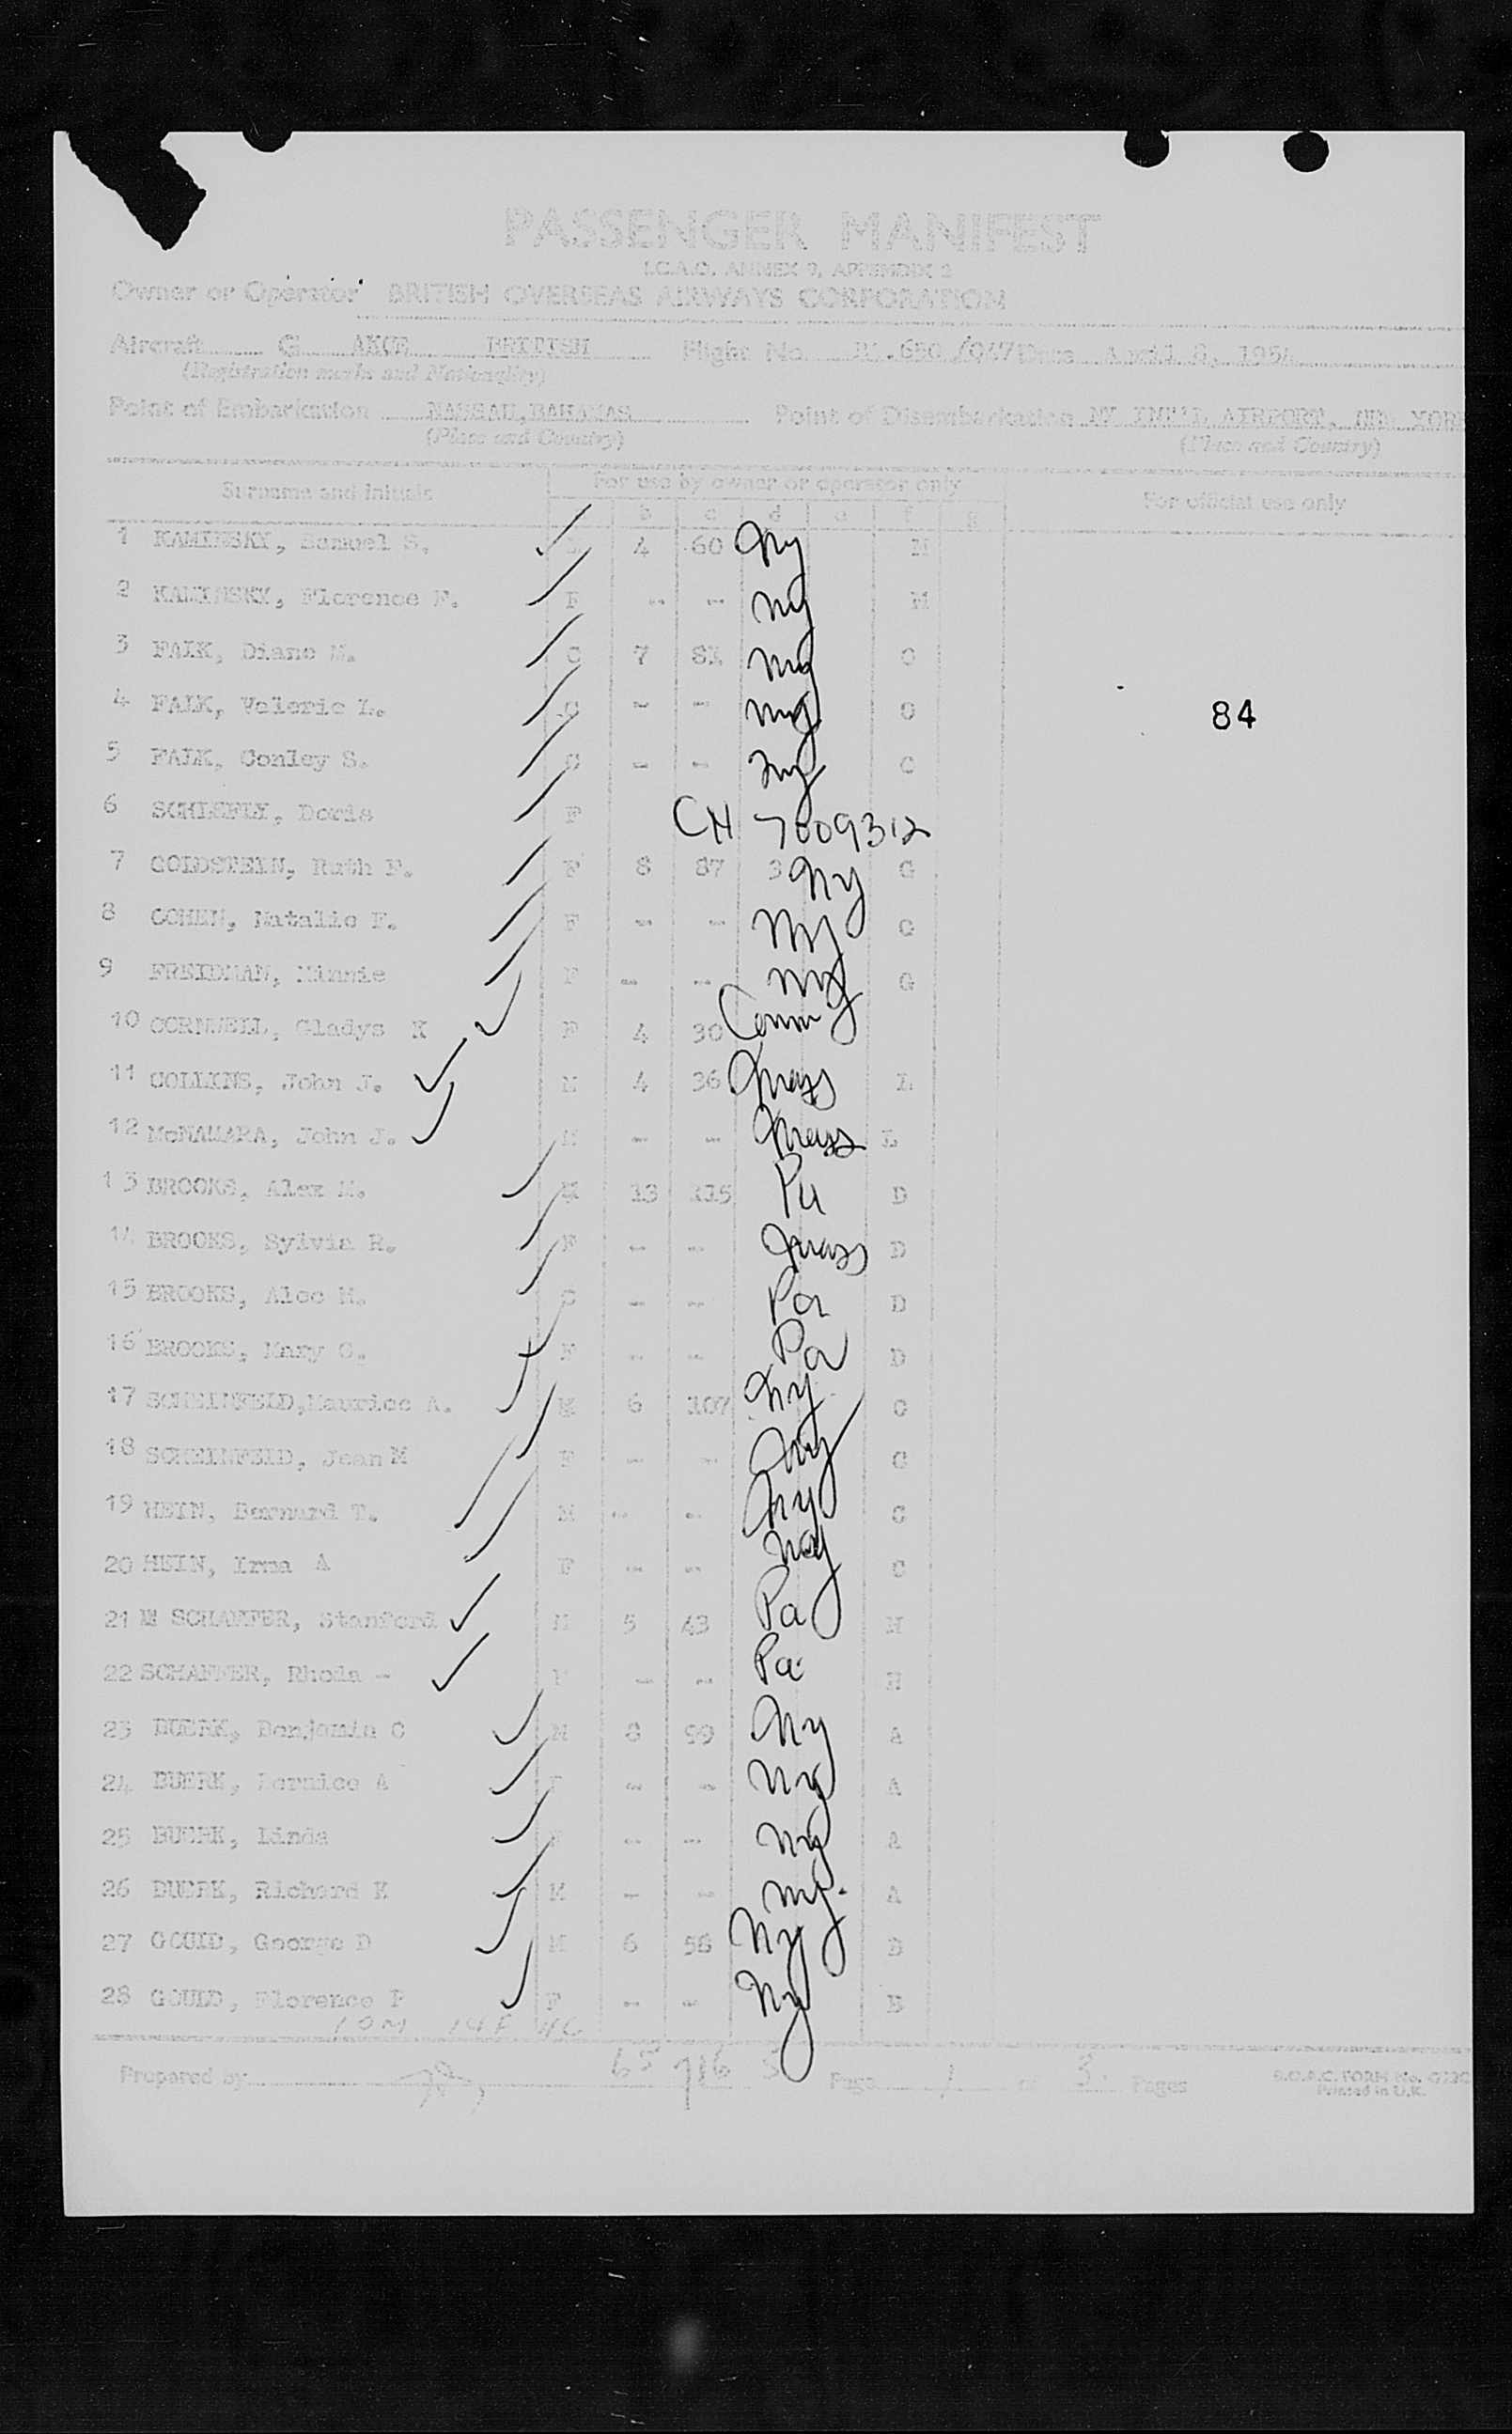 PASSENGER MANIFEST
I.C.A.O. ANNEX 9, APPENDIX 2
Owner or Operator BRITISH OVERSEAS AIRWAYS CORPORATION
Aircraft G BRITISH Flight No. 650 /047 Date April 8, 195
(Registration marks and Nationality)
Point of Embarkation NASSAU, BAHAMAS Point of Disembarkation NY INT'L AIRPORT, NEW YORK
(Place and Country) (Place and Country)
Surname and Initials For use by owner or operator only For official use only
b c d e f g
1 KAMINSKY, Samuel S. 4 60 Ny M
2 KAMINSKY, Florence F. F -- -- Ny M
3 FALK, Diane M. C 7 81 Ny C
4 FALK, Valerie L. C - -- Ny C
84
5 FALK, Conley S. C - -- Ny C
6 SCHLEFLY, Doris F CH 7009312
7 GOLDSTEIN, Ruth F. F 8 87 3 Ny G
8 COHEN, Natalie F. F -- -- Ny G
9 FREIDMAN, Minnie F -- -- Ny G
10 CORNWELL, Gladys K F 4 30 Conn
11 COLLINS, John J. M 4 36 Mass L
12 McNAMARA, John J. M -- -- Mass L
13 BROOKS, Alex M. M 13 115 Pa D
14 BROOKS, Sylvia R. F -- -- Mass D
15 BROOKS, Alec M. C -- -- Pa D
16 BROOKS, Mary C. F -- -- Pa D
17 SCHEINFELD, Maurice A. M 6 107 Ny C
18 SCHEINFELD, Jean M F -- -- Ny C
19 HEIN, Bernard T. M -- -- Ny C
20 HEIN, Irma A F -- -- Ny C
21 M SCHAEFER, Stanford M 5 43 Pa H
22 SCHAFFER, Rhoda - F -- -- Pa H
23 BUERK, Benjamin C M 8 99 Ny A
24 BUERK, Bernice A F -- -- Ny A
25 BUERK, Linda F -- -- Ny A
26 BUERK, Richard K M - -- Ny. A
27 GOULD, George D M 6 58 Ny B
28 GOULD, Florence P F -- -- Ny B
10M 14F 4C
Prepared by 65 716 5 Page 1 of 3. Pages
B.O.A.C. FORM No.
Printed in U.K.